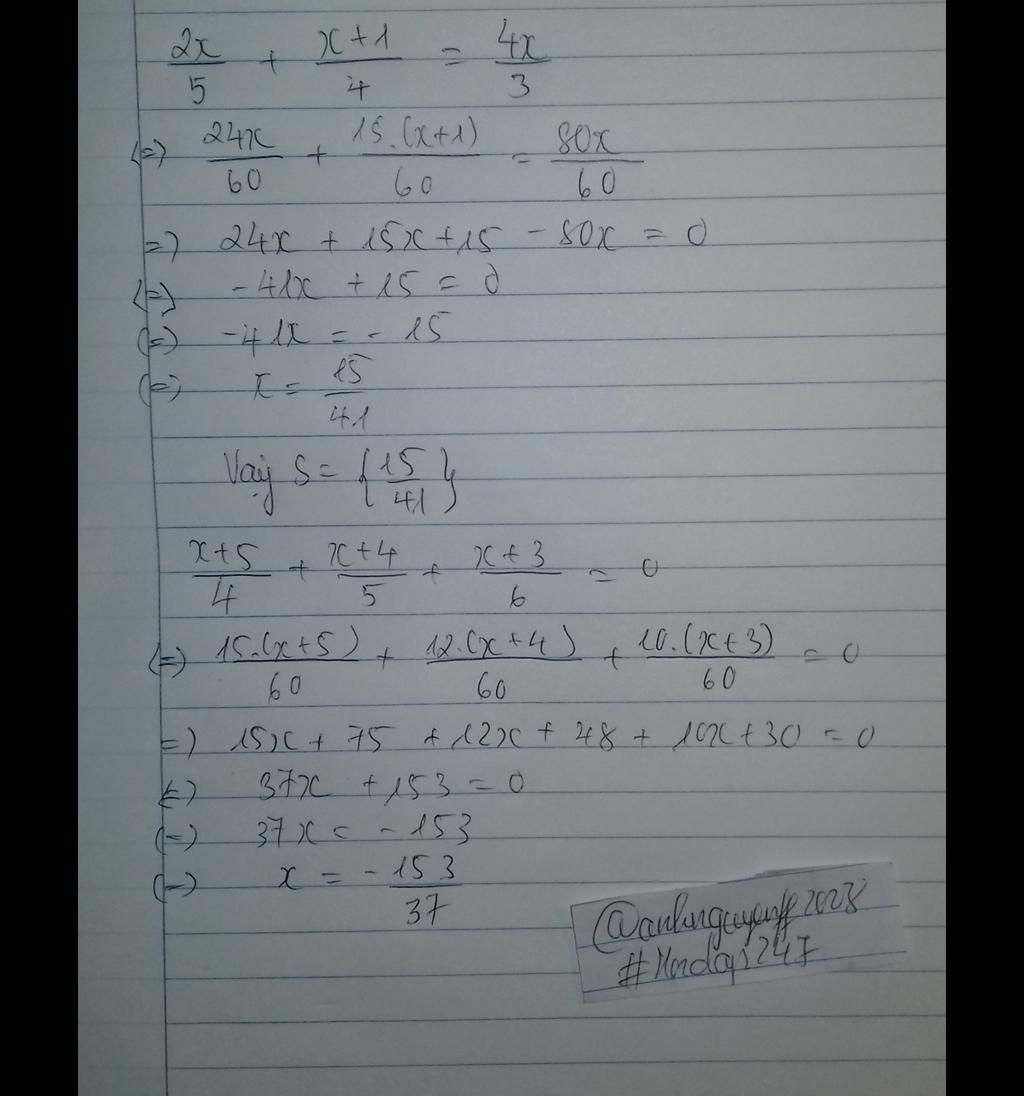 2x/5 + x+1/4 = 4x/3
(=) 24x/60 + 15.(x+1)/60 = 80x/60
=) 24x + 15x+15 - 80x = 0
(=) -41x + 15 = 0
(=) -41x = -15
(=) x = 15/41
Vậy S = {15/41}
x+5/4 + x+4/5 + x+3/6 = 0
(=) 15.(x+5)/60 + 12.(x+4)/60 + 10.(x+3)/60 = 0
=) 15x + 75 + 12x + 48 + 10x + 30 = 0
(=) 37x + 153 = 0
(=) 37x = -153
(=) x = -153/37